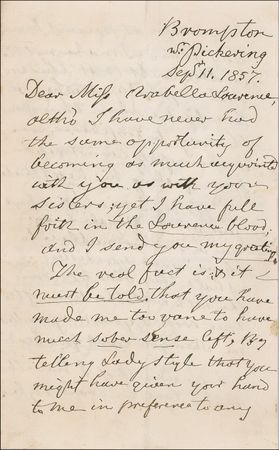 Brompton
nr Pickering
Sepr 11. 1857.
Dear Miss Arabella Lawrence
altho I have never had
the same opportunity of
becoming as much acquainted
with you as with your
sisters, yet I have full
faith in the Lawrence blood,
and I send you my greeting.
The real fact is, & it
must be told, that you have
made me too vane to have
much sober sense left, By
telling Lady Style that you
might have given your hand
to me in preference to any